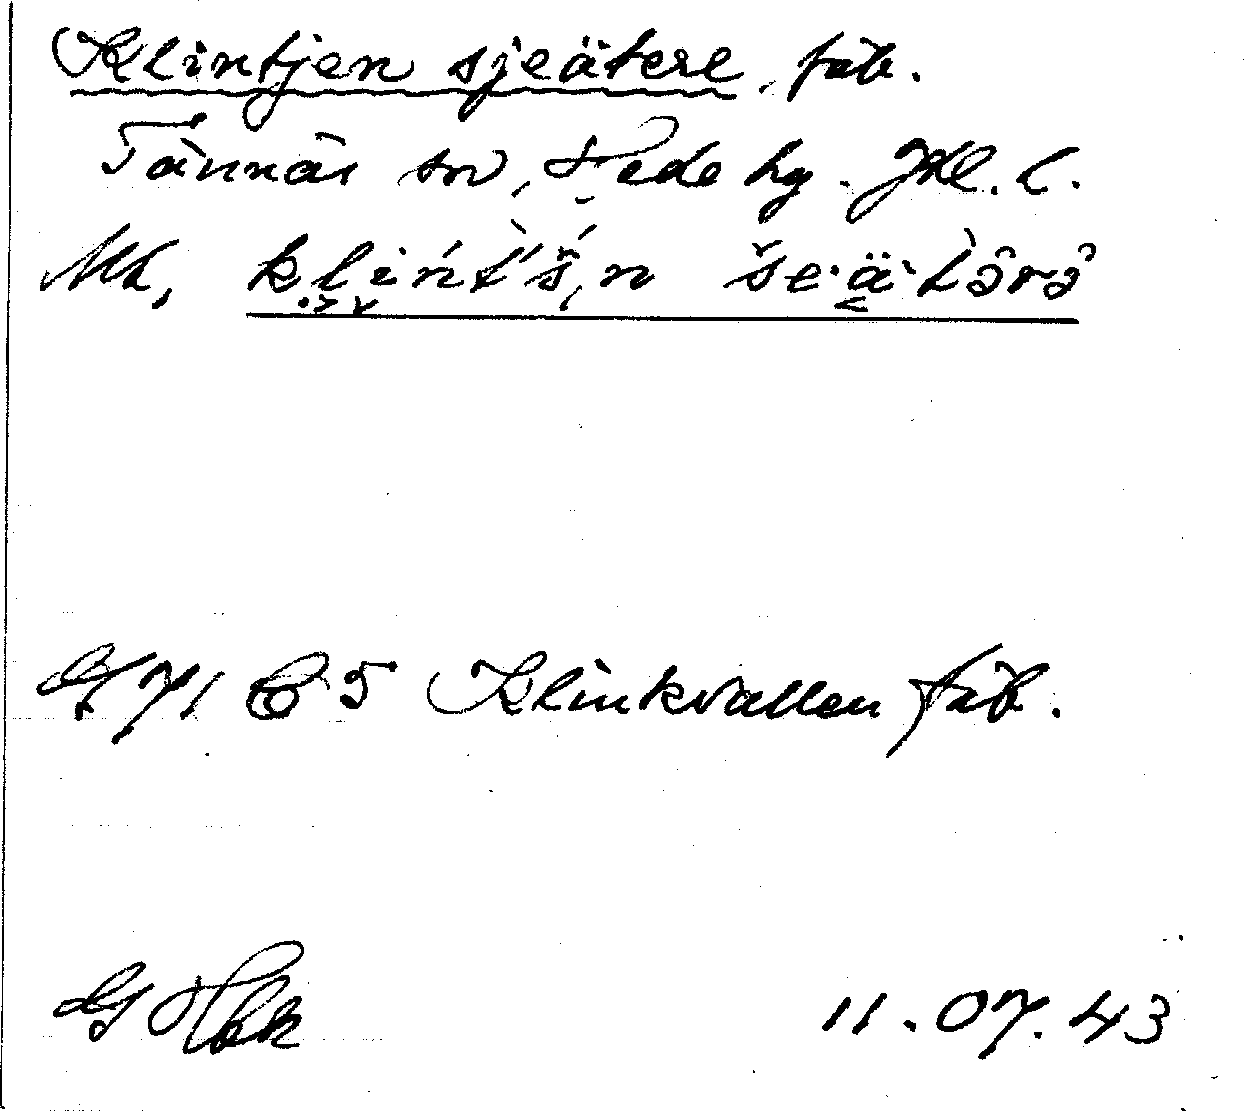 Klintjen sjeätere, fäb.
Tännäs sn, Hede hg. Jtl. l.
klint'šn šeätərə
G 71 C 5 Klinkvallen fäb.
11.07.43